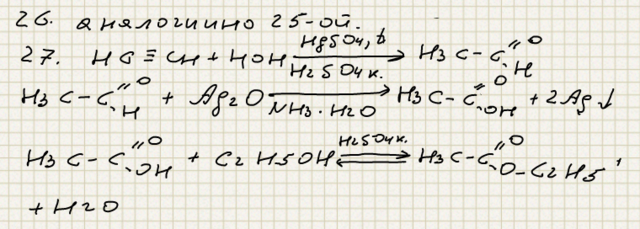 26. аналогично 25-ой.
27. HC≡CH + HOH HgSO4, t H2SO4 к. → H3C-C=O H
H3C-C=O H + Ag2O NH3·H2O → H3C-C=O OH + 2Ag↓
H3C-C=O OH + C2H5OH H2SO4 к. ⇌ H3C-C=O O-C2H5 +
+ H2O